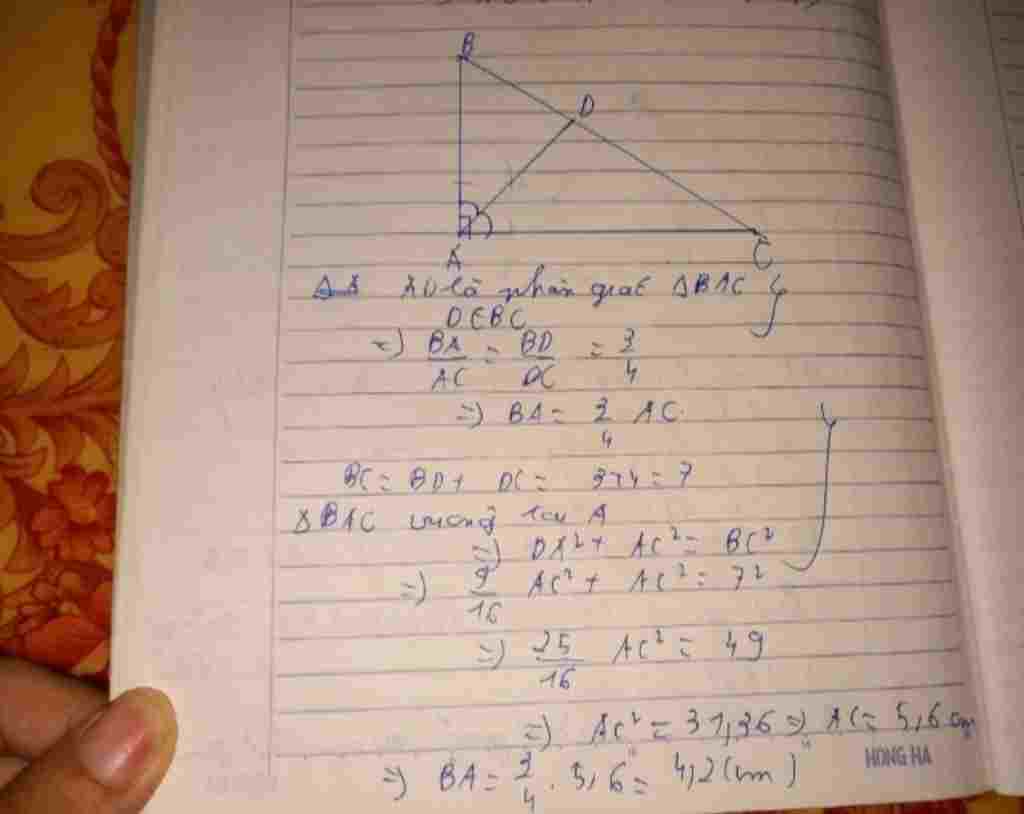 B
D
A
C
AD là phân giác ΔBAC
D∈BC
=) BA/AC = BD/DC = 3/4
=) BA = 3/4 AC
BC = BD + DC = 3+4 = 7
ΔBAC vuông tại A
=) BA² + AC² = BC²
=) 9/16 AC² + AC² = 7²
=) 25/16 AC² = 49
=) AC² = 31,36 =) AC = 5,6 cm
=) BA = 3/4 . 5,6 = 4,2 (cm)
HONG HA